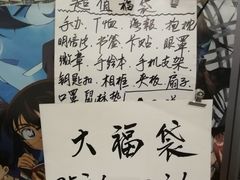 超值福袋
手办、T恤、海报、抱枕
明信片、书签、卡贴、眼罩
徽章、手绘本、手机支架
钥匙扣、相框、夹板、扇子
口罩、鼠标垫
大福袋